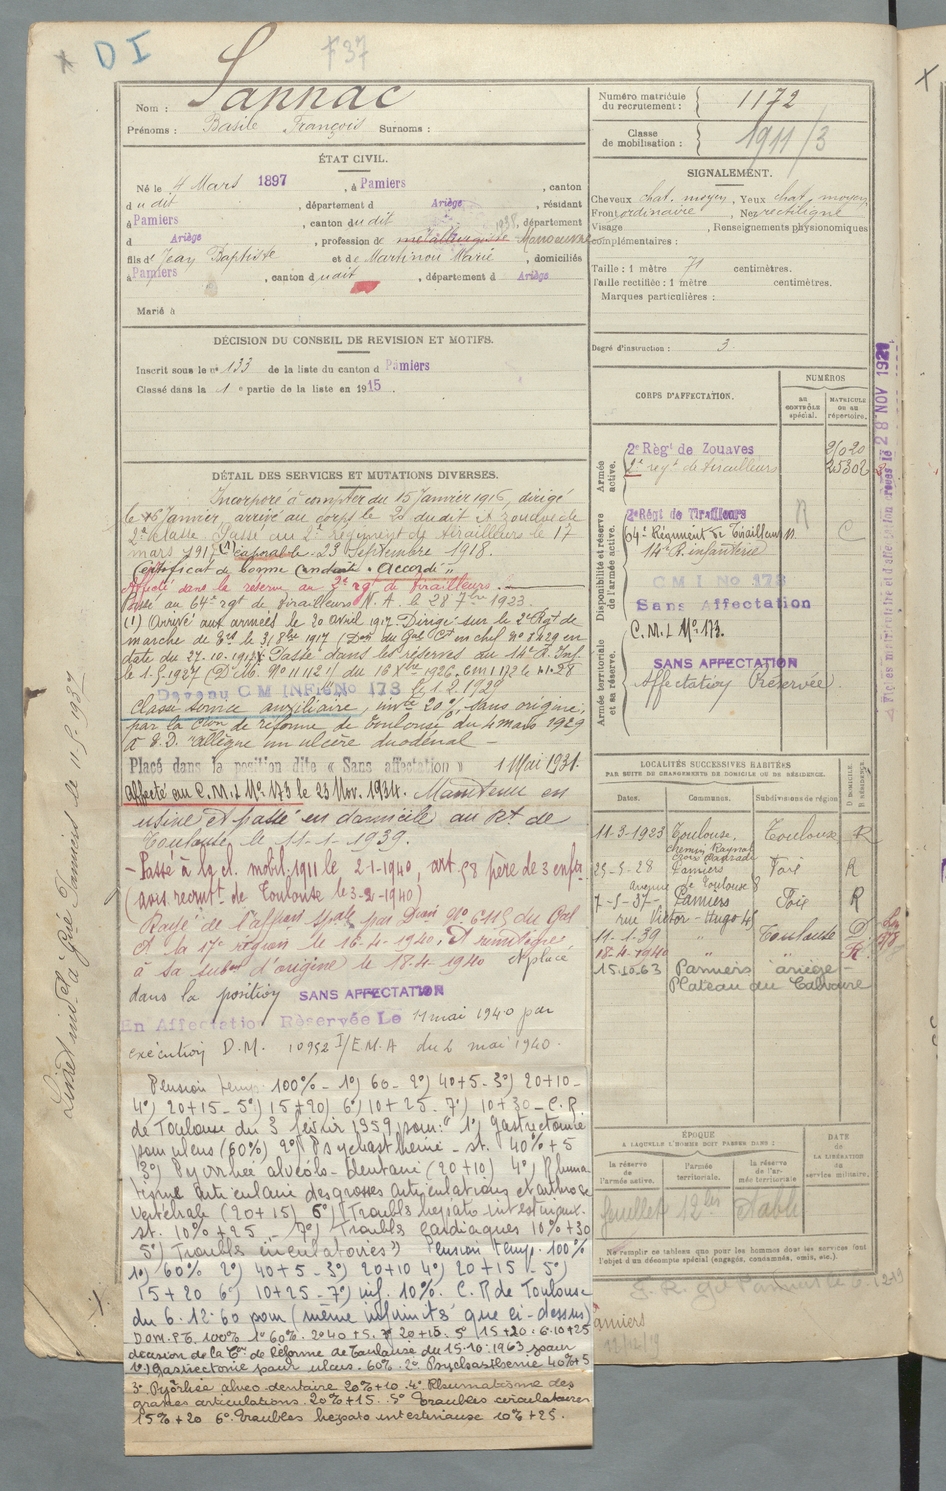 D I
F37
Nom : Sannac
Prénoms : Basile François Surnoms :
Numéro matricule du recrutement : 1172
Classe de mobilisation : 1911/3
ÉTAT CIVIL.
Né le 4 Mars 1897, à Pamiers, canton
d udit, département d Ariège, résidant
à Pamiers, canton du dit 1938, département
d Ariège, profession de métallurgiste Manoeuvre
fils de Jean Baptiste et de Martinou Marie, domiciliés
à Pamiers, canton d udit, département d Ariège
Marié à
SIGNALEMENT.
Cheveux chat. moyen, Yeux chat. moyen
Front ordinaire, Nez rectiligne
Visage , Renseignements physionomiques
complémentaires :
Taille : 1 mètre 71 centimètres.
Taille rectifiée : 1 mètre centimètres.
Marques particulières :
Degré d'instruction : 3
DÉCISION DU CONSEIL DE REVISION ET MOTIFS.
Inscrit sous le n° 133 de la liste du canton d Pamiers
Classé dans la 1e partie de la liste en 1915.
DÉTAIL DES SERVICES ET MUTATIONS DIVERSES.
Incorporé à compter du 15 Janvier 1916, dirigé
le 16 Janvier, arrivé au corps le 20 dudit zouave de
2e classe. Passé au 2e Régiment de tirailleurs le 17
mars 1917 (1) caporal le 23 Septembre 1918.
Certificat de bonne conduite "Accordé"
Affecté dans la réserve au 2e rgt de tirailleurs.
Passé au 64e rgt de tirailleurs N. A. le 28 7bre 1923.
(1) Arrivé aux armées le 20 avril 1917. Dirigé sur le 2e Rgt de
marche de le 31 8bre 1917 (Don du Gal Ct en chef No 8429 en
date du 27-10-1917. Passé dans les réserves du 14e R. Inf.
le 1-5-1927 (D. No 11112 1/ du 16 Xbre 1926.
Devenu C M INFie No 173 le 1.2.1929
Classé service auxiliaire, invte 20%, sans origine,
par la Cion de réforme de Toulouse du 4 mars 1929
allègue un ulcère duodénal -
Placé dans la position dite « Sans affectation » 1 Mai 1931.
Affecté au C.M.I No 173 le 23 Nov. 1934. Maintenu en
usine et passé en domicile au Rt de
Toulouse le 11-1-1939.
- Passé à la cl. mobil. 1911 le 2-1-1940, art 58 père de 3 enfts
(avis recrutt de Toulouse le 3-2-1940)
Rayé de l'affon spale par No 6115 du Gal
Ct la 17e région le 16-4-1940. Et réintégré
à sa subon d'origine le 18-4-1940 et placé
dans la position SANS AFFECTATION
En Affectation Réservée Le 11 mai 1940 par
exécution D.M. 10952 I/E.M.A du 2 mai 1940.
Pension temp. 100% - 1°) 60 - 2°) 40+5 - 3°) 20+10 -
4°) 20+15 - 5°) 15+20) 6°) 10+25 - 7°) 10+30 - C.R.
de Toulouse du 3 février 1959 pour: "1°) gastrectomie
pour ulcus (60%) 2°) Psychasthénie - st. 40%+5
3°) Pyorrhée alvéolo-dentaire (20+10) 4°) Rhuma
tisme articulaire des grosses articulations et arthrose
vertébrale (20+15) 6°) Troubles hépato intestinaux.
st. 10%+25 - 7°) Troubles cardiaques 10%+30
5°) Troubles circulatoires" Pension temp. 100%
1°) 60% 2°) 40+5 - 3°) 20+10 4°) 20+15 - 5°)
15+20 6°) 10+25 - 7°) inf. 10%. C.R de Toulouse
du 6-12-60 pour (même infirmités que ci-dessus)
100% 1° 60%. 2° 40+5. 20+15. 5° 15+20. 6° 10+25
décision de la Con de Réforme de Toulouse du 15-10-1963 pour
1°) Gastrectomie pour ulcus. 60%. 2° Psychasthénie 40%+5
3° Pyorrhée alveo-dentaire 20%+10. 4° Rhumatisme des
grosses articulations. 20%+15. 5° troubles circulatoires
15%+20 6° troubles hepato intestinaux 10%+25.
CORPS D'AFFECTATION.
NUMÉROS
AU CONTRÔLE spécial.
MATRICULE OU AU répertoire.
Armée active.
2e Règt de Zouaves
2e regt de tirailleurs 25302
Disponibilité et réserve de l'armée active.
2e Régt de Tirailleurs R
64e Régiment de Tirailleurs C
14e R. infanterie
C M I No 173
Sans Affectation
C.M.I No 173.
Armée territoriale et sa réserve.
SANS AFFECTATION
Affectation Réservée
LOCALITÉS SUCCESSIVES HABITÉES
PAR SUITE DE CHANGEMENTS DE DOMICILE OU DE RÉSIDENCE.
Dates. Communes. Subdivisions de région D DOMICILE. R RÉSIDENCE.
11-3-1923 Toulouse. Toulouse R
chemin Raynal
29-5-28 Pamiers Foix R
avenue de Toulouse 8
7-5-37- Pamiers Foix R
rue Victor-Hugo 45
11-1-39 " Toulouse D
18-4-1940 " " R
15.10.63 Pamiers ariège -
Plateau du Calvaire
ÉPOQUE
A LAQUELLE L'HOMME DOIT PASSER DANS :
la réserve de l'armée active.
l'armée territoriale.
la réserve de l'armée territoriale
DATE de LA LIBÉRATION du service militaire.
feuillet 12bis établi
Ne remplir ce tableau que pour les hommes dont les services font
l'objet d'un décompte spécial (engagés, condamnés, omis, etc.).
Pamiers
28 NOV 1921